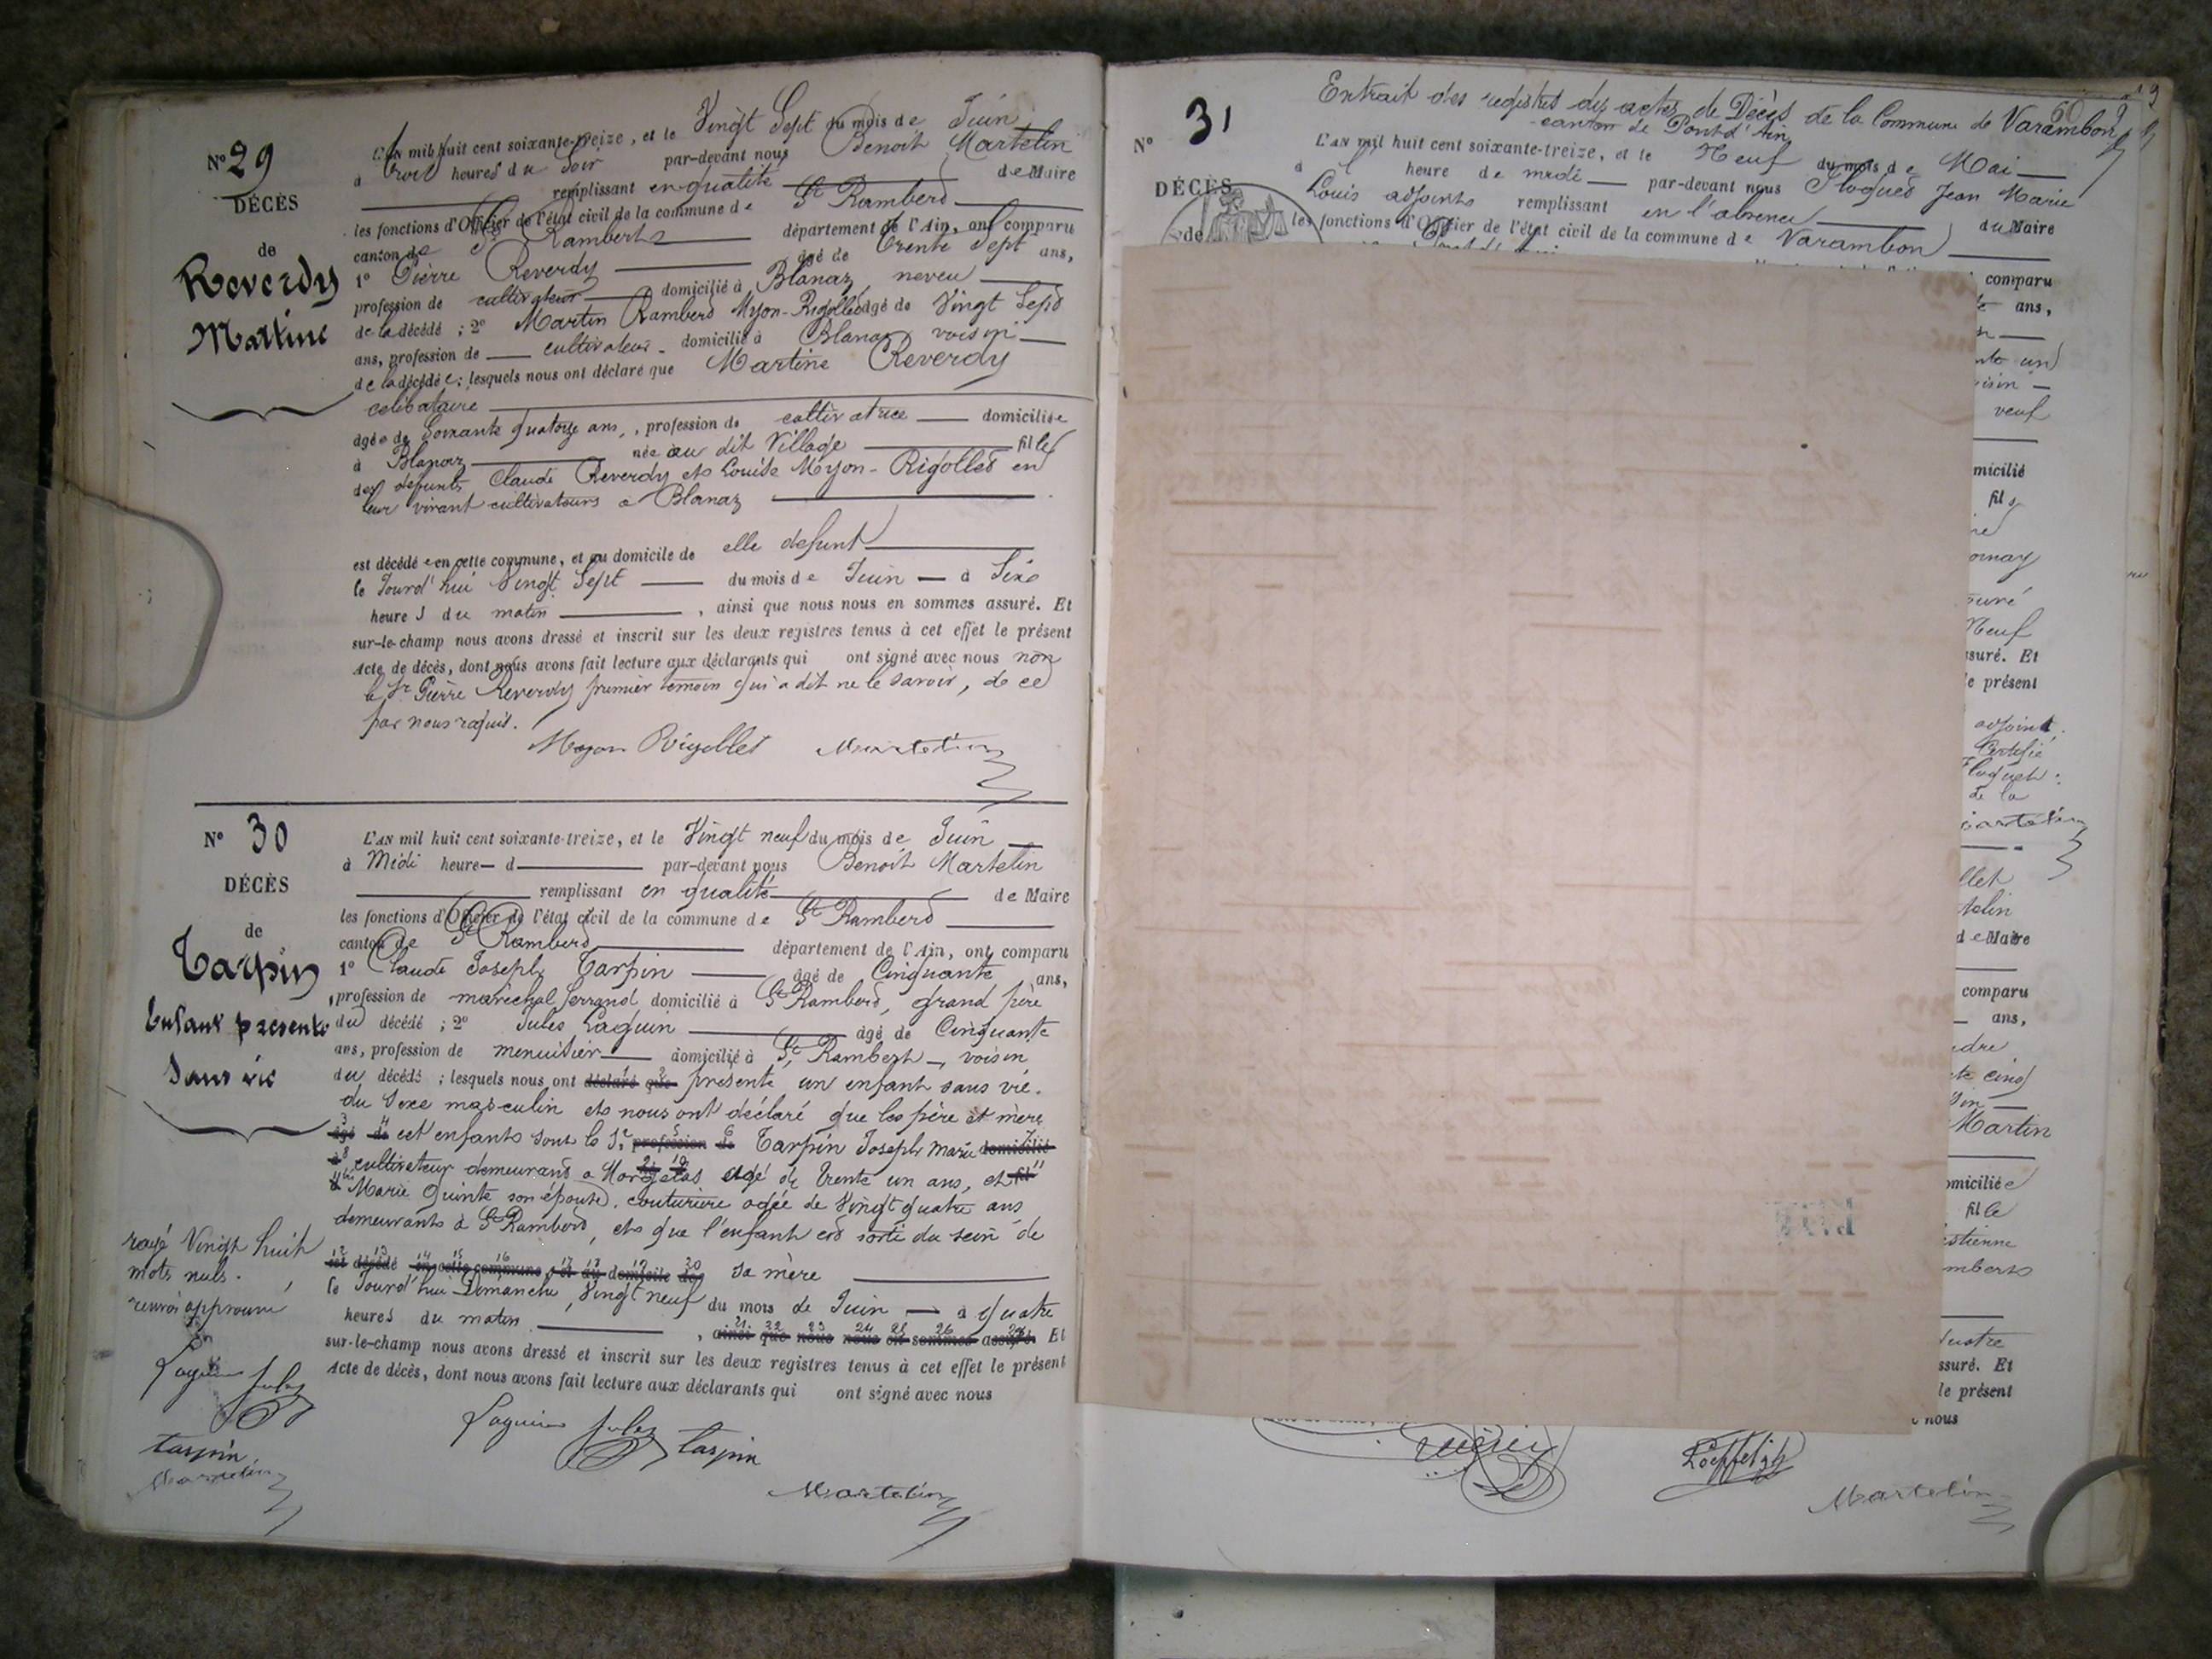 N° 29
DÉCÈS
de
Reverdy
Martine
L'AN mil huit cent soixante-treize, et le Vingt Sept du mois de Juin
à trois heures du Soir par-devant nous Benoit Martelin
remplissant en qualité de Maire
les fonctions d'Officier de l'état civil de la commune de St Rambert
canton de St Rambert département de l'Ain, ont comparu
1° Pierre Reverdy âgé de trente Sept ans,
profession de cultivateur domicilié à Blanaz, neveu
de la décédé ; 2° Martin Rambert Myon-Rigollet âgé de Vingt Sept
ans, profession de cultivateur domicilié à Blanaz voisin
de la décédée ; lesquels nous ont déclaré que Martine Reverdy
celibataire
âgée de Soixante quatorze ans, profession de cultivatrice domiciliée
à Blanaz née au dit Village fille
des defunts Claude Reverdy et Louise Myon-Rigollet en
leur vivant cultivateurs a Blanaz
est décédée en cette commune, et au domicile de elle defunt
le Jourd'hui Vingt Sept du mois de Juin à Six
heures du matin , ainsi que nous nous en sommes assuré. Et
sur-le-champ nous avons dressé et inscrit sur les deux registres tenus à cet effet le présent
Acte de décès, dont nous avons fait lecture aux déclarants qui ont signé avec nous non
le Sr Pierre Reverdy premier temoin qui a dit ne le savoir, de ce
par nous requis.
Myon Rigollet Martelin
N° 30
DÉCÈS
de
Tarpin
Enfant presenté
Sans vie
L'AN mil huit cent soixante-treize, et le Vingt neuf du mois de Juin
à Midi heure d par-devant nous Benoit Martelin
remplissant en qualité de Maire
les fonctions d'Officier de l'état civil de la commune de St Rambert
canton de St Rambert département de l'Ain, ont comparu
1° Claude Joseph Tarpin âgé de Cinquante ans,
profession de maréchal ferrand domicilié à St Rambert, grand père
du décédé ; 2° Jules Laguin âgé de Cinquante
ans, profession de menuisier domicilié à St Rambert, voisin
du décédé ; lesquels nous ont déclaré que presenté un enfant sans vie.
du Sexe masculin et nous ont déclaré que les père et mère
âgé de cet enfant sont le Sr profession de Tarpin Joseph Marie domicilié
à cultivateur demeurant a Morgelas agé de trente un ans, et fil
Marie Quinte son épouse couturière agée de Vingt quatre ans
demeurants à St Rambert, et que l'enfant est sorti du sein de
est décédé en cette commune, et au domicile de sa mère
le Jourd'hui Dimanche, Vingt neuf du mois de Juin à quatre
heures du matin , ainsi que nous nous en sommes assuré. Et
sur-le-champ nous avons dressé et inscrit sur les deux registres tenus à cet effet le présent
Acte de décès, dont nous avons fait lecture aux déclarants qui ont signé avec nous
rayé Vingt huit
mots nuls.
renvoi approuvé
Laguin Jules
Tarpin
Martelin
Laguin Jules Tarpin
Martelin
Entrait des registres des actes de Décès de la Commune de Varambon
canton de Pont d'Ain
60
N° 31
DÉCÈS
de
L'AN mil huit cent soixante-treize, et le Neuf du mois de Mai
à 1 heure de midi par-devant nous Jean Marie
Louis adjoint remplissant en l'absence du Maire
les fonctions d'Officier de l'état civil de la commune de Varambon
comparu
ans,
un
veuf
micilié
fils
Neuf
ssuré. Et
e présent
adjoint.
Certifié
de la
Martelin
llet
telin
de Maire
comparu
ans,
cinq
Martin
omiciliée
fille
estienne
mbert
ssuré. Et
le présent
nous
Martelin